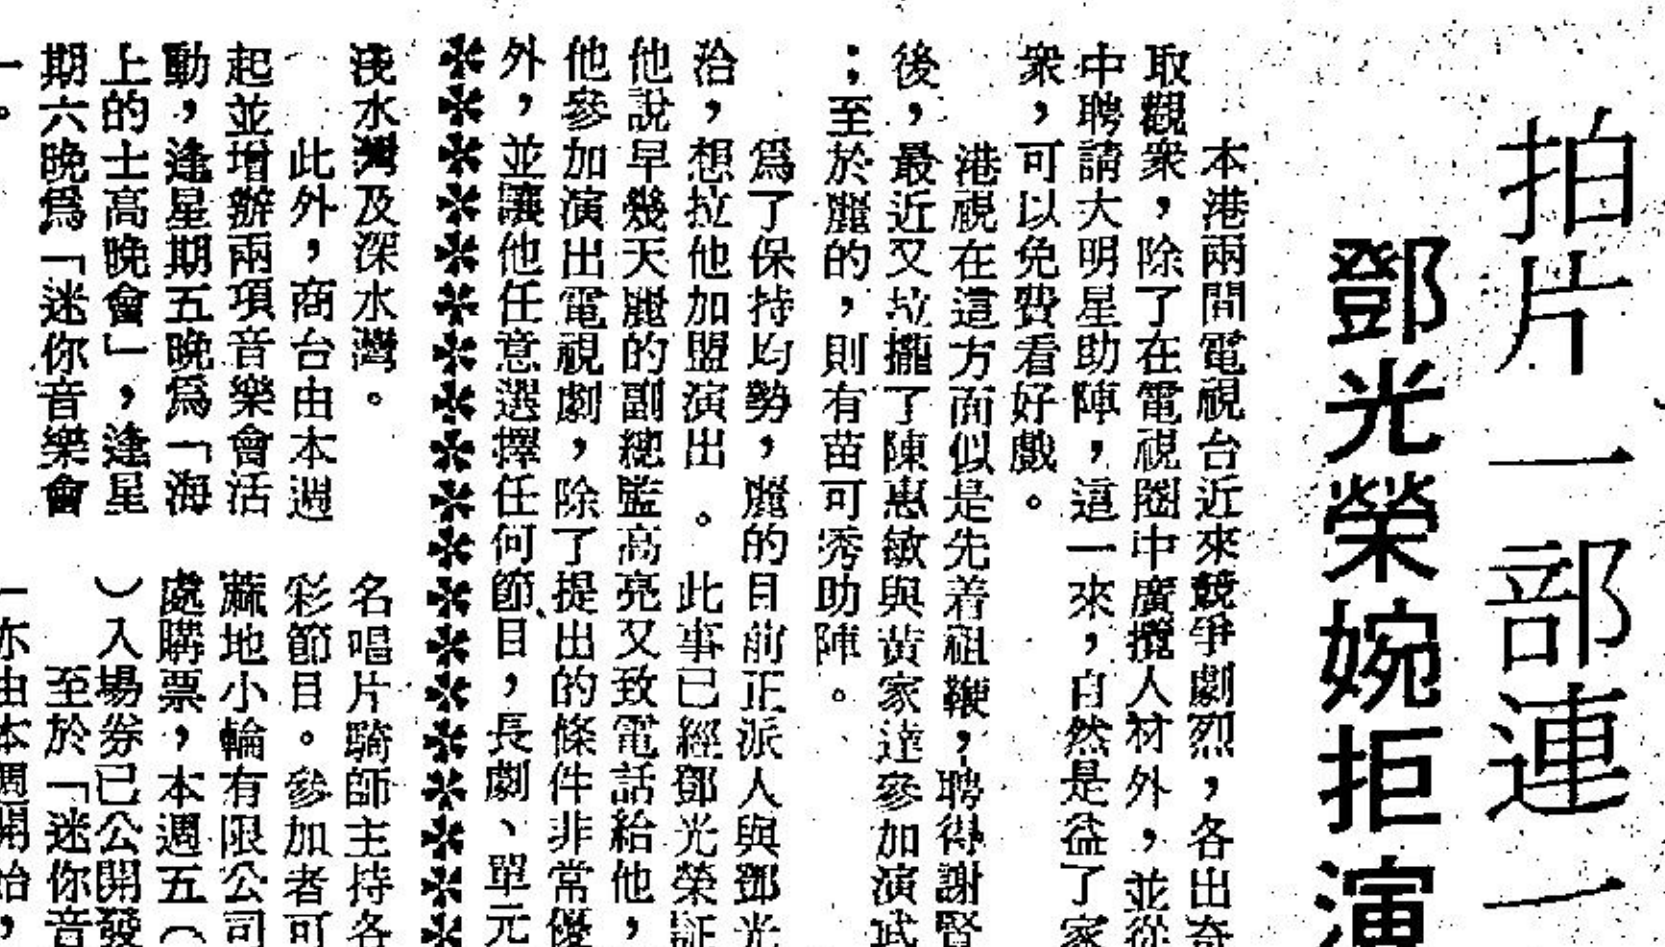 拍片一部連一
鄧光榮婉拒演
本港兩間電視台近來競爭劇烈，各出奇
取觀衆，除了在電視圈中廣攬人材外，並從
中聘請大明星助陣，這一來，自然是益了家
衆，可以免費看好戲。
港視在這方面似是先着祖鞭，聘得謝賢
後，最近又拉攏了陳惠敏與黃家達參加演武
；至於麗的，則有苗可秀助陣。
爲了保持均勢，麗的目前正派人與鄧光
洽，想拉他加盟演出。此事已經鄧光榮証
他說早幾天麗的副總監高亮又致電話給他，
他參加演出電視劇，除了提出的條件非常優
外，並讓他任意選擇任何節目，長劇、單元
淺水灣及深水灣。
此外，商台由本週
起並增辦兩項音樂會活
動，逢星期五晚爲「海
上的士高晚會」，逢星
期六晚爲「迷你音樂會
」。
名唱片騎師主持各
彩節目。參加者可
蔴地小輪有限公司
處購票，本週五（
）入場券已公開發
至於「迷你音
亦由本週開始，